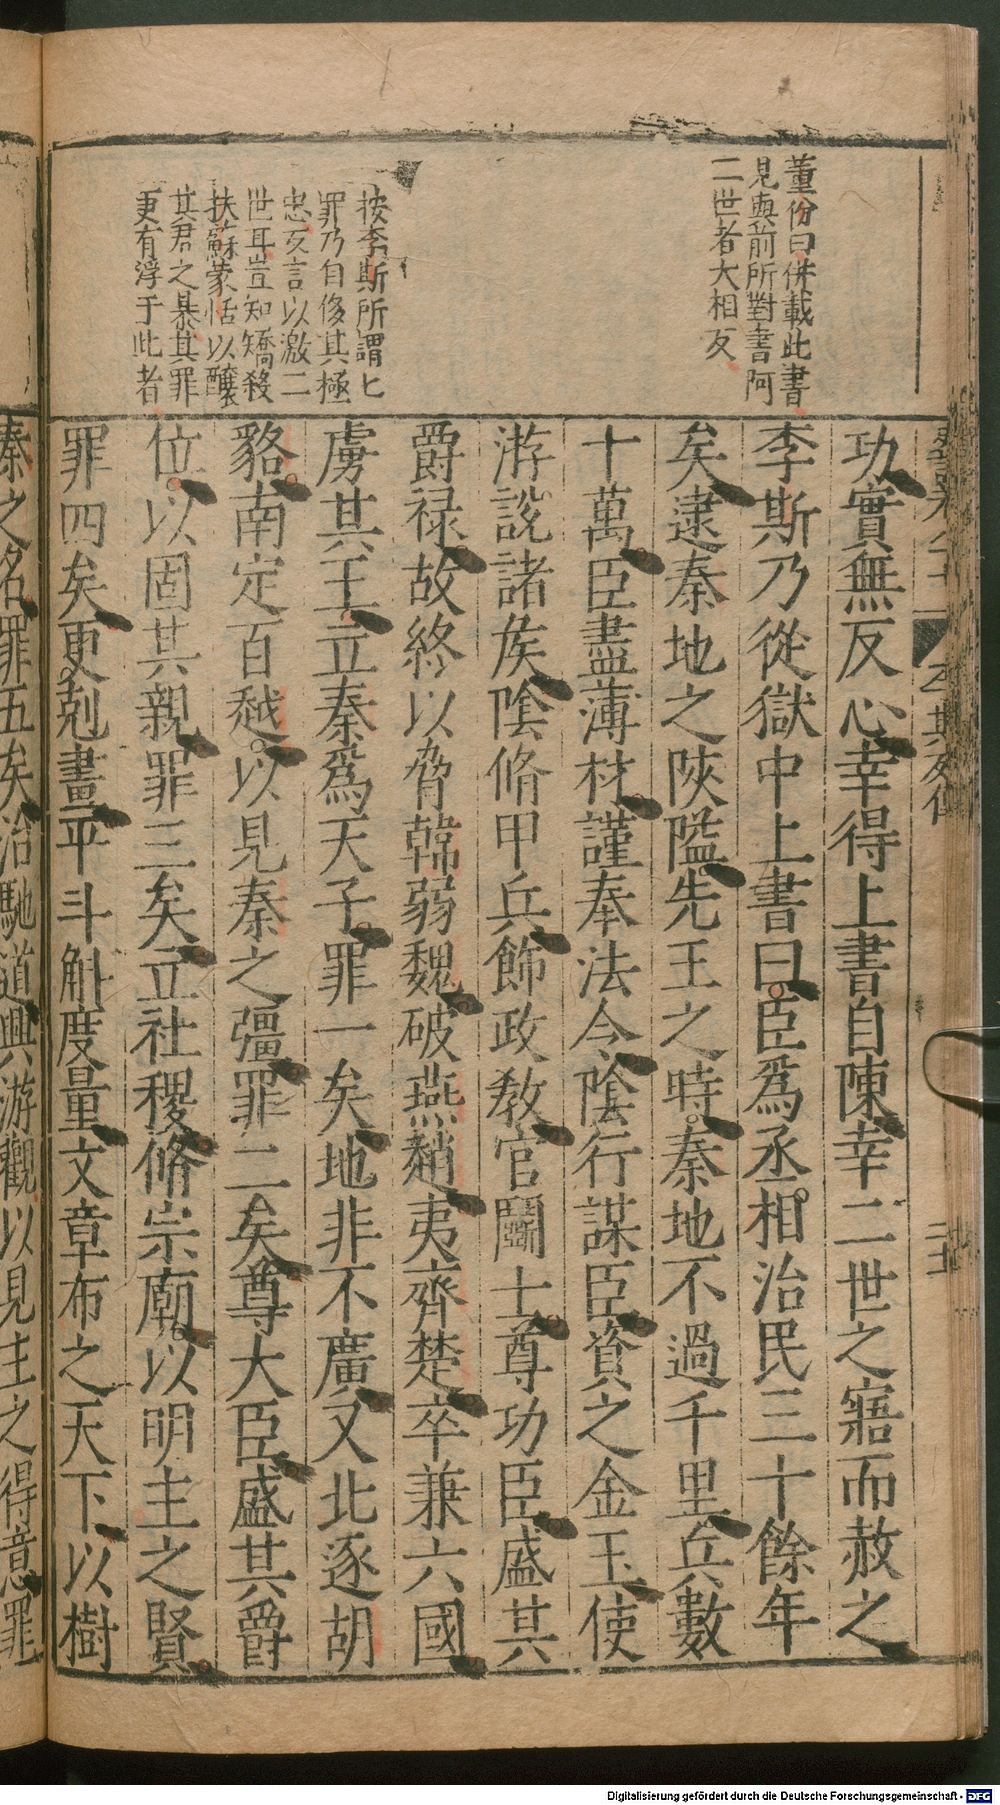 董份曰併載此書
見與前所對書阿
二世者大相反
按李斯所謂七
罪乃自侈其極
忠反言以激二
世耳豈知矯殺
扶蘇蒙恬以釀
其君之暴其罪
更有浮于此者
功實無反心幸得上書自陳幸二世之寤而赦之
李斯乃從獄中上書曰臣爲丞相治民三十餘年
矣逮秦地之陜隘先王之時秦地不過千里兵數
十萬臣盡薄材謹奉法令陰行謀臣資之金玉使
游說諸矦陰脩甲兵飾政敎官鬬士尊功臣盛其
爵禄故終以脅韓弱魏破燕趙夷齊楚卒兼六國
虜其王立秦爲天子罪一矣地非不廣又北逐胡
貉南定百越以見秦之彊罪二矣尊大臣盛其爵
位以固其親罪三矣立社稷脩宗廟以明主之賢
罪四矣更剋畫平斗斛度量文章布之天下以樹
秦之名罪五矣治馳道興游觀以見主之得意罪
Digitalisierung gefördert durch die Deutsche Forschungsgemeinschaft - DFG